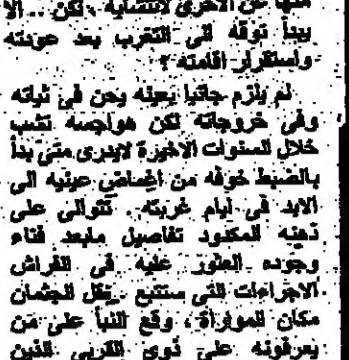 منها عن الأخرى لتتشابه، لكن .. ألا
يبدأ توقه الى التغرب بعد عودته
واستقرار اقامته ؟
لم يلزم جانبا بعينه يحن في ثباته
وفي خروجاته لكن هواجسه تشب
خلال السنوات الاخيرة لايدرى متى بدأ
بالضبط خوفه من اغماض عينيه الى
الابد في ايام غربته. تتوالى على
ذهنه المكدود تفاصيل مابعد فناء
وجوده العثور عليه في الفراش
الاجراءات التى ستتبع نقل الجثمان
مكان الموارأة، وقع النبأ على من
يعرفونه على ذوى القربى الذين